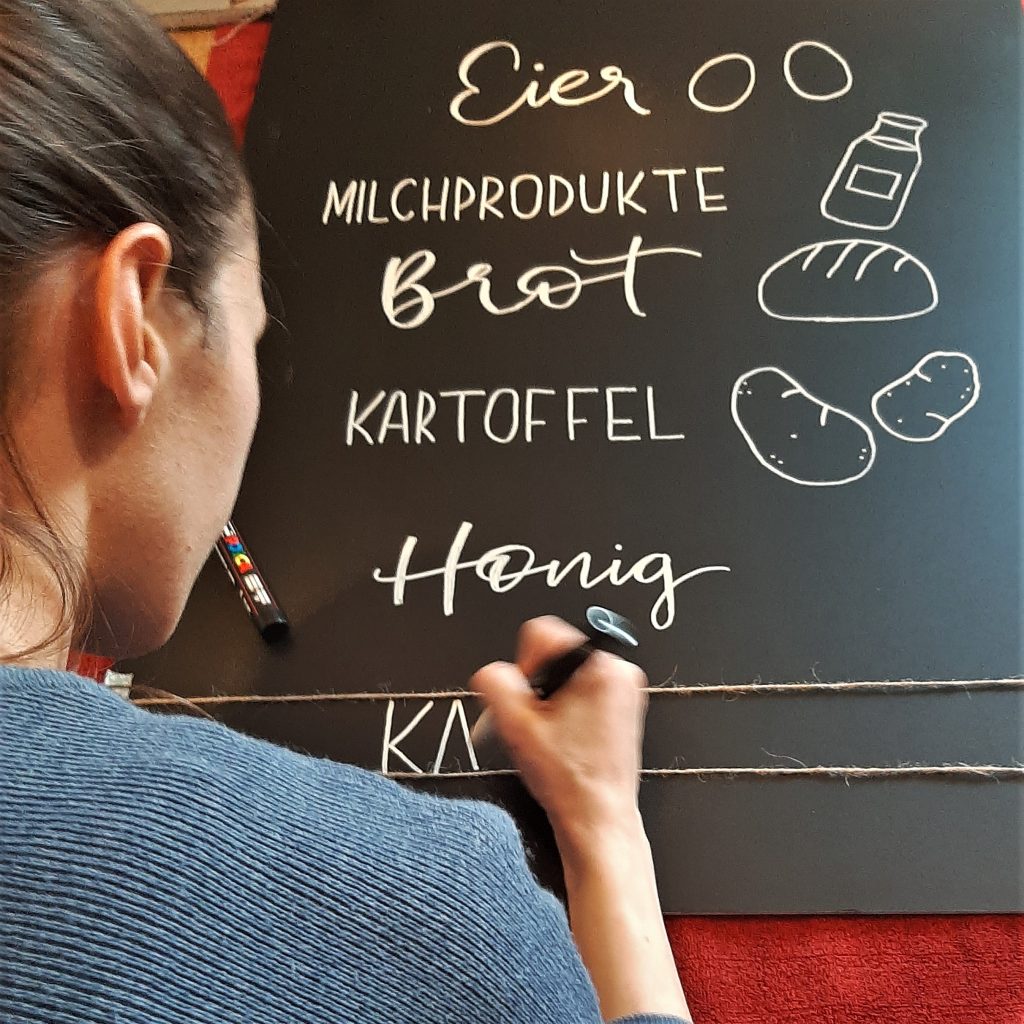 Eier
MILCHPRODUKTE
Brot
KARTOFFEL
Honig
KA
POSCA